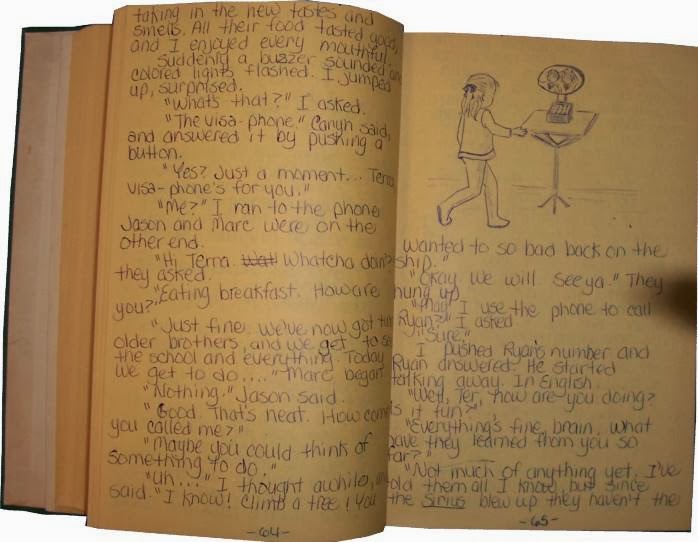 taking in the new tastes and
smells. All their food tasted good,
and I enjoyed every mouthful.
Suddenly a buzzer sounded and
colored lights flashed. I jumped
up, surprised.
"What's that?" I asked.
"The visa-phone." Caryh said,
and answered it by pushing a
button.
"Yes? Just a moment... Terra
visa-phone's for you."
"Me?" I ran to the phone
Jason and Marc were on the
other end.
"Hi Terra. Wat Whatcha doin'?"
they asked.
"Eating breakfast. How are
you?"
"Just fine. We've now got two
older brothers, and we get to see
the school and everything. Today
we get to do...." Marc began
"Nothing." Jason said.
"Good. That's neat. How come
you called me?"
"Maybe you could think of
something to do."
"Uh..." I thought awhile,
said. "I know! Climb a tree! You
-64-
wanted to so bad back on the
ship."
"Okay. We will. See ya." They
hung up.
"May I use the phone to call
Ryan?" I asked
"Sure."
I pushed Ryan's number and
Ryan answered. He started
talking away. In English.
"Well, Ter, how are you doing?
Is it fun?"
"Everything's fine, brain. What
have they learned from you so
far?"
"Not much of anything yet. I've
told them all I know, but since
the Sirius blew up they haven't the
-65-